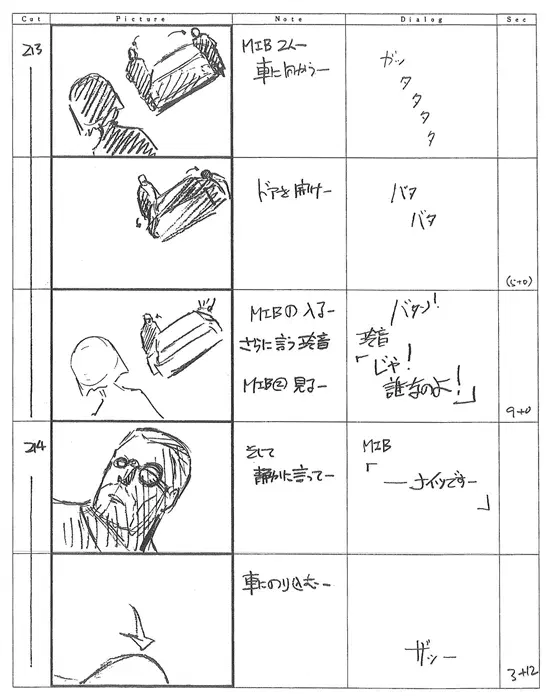 Cut Picture Note Dialog Sec
213
MIB 2人ー
車に向かうー
ガッ
タ
タ
タ
タ
ドアを開けー
バタ
バタ
(5+0)
MIBの入るー
さらに言う玲音
MIB② 見るー
バターン!
玲音
「じゃ!
誰なのよ!」
9+0
214
そして
静かに言ってー
MIB
「
ーーナイツですー
」
車にのり込むー
ザッー
3+12